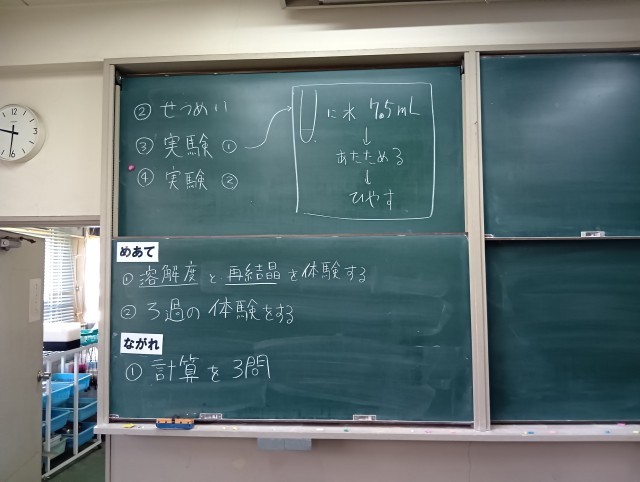 ② せつめい
③ 実験 ①
④ 実験 ②
に水 7.5mL
↓
あたためる
↓
ひやす
めあて
① 溶解度と再結晶を体験する
② ろ過の体験をする
ながれ
① 計算を3問